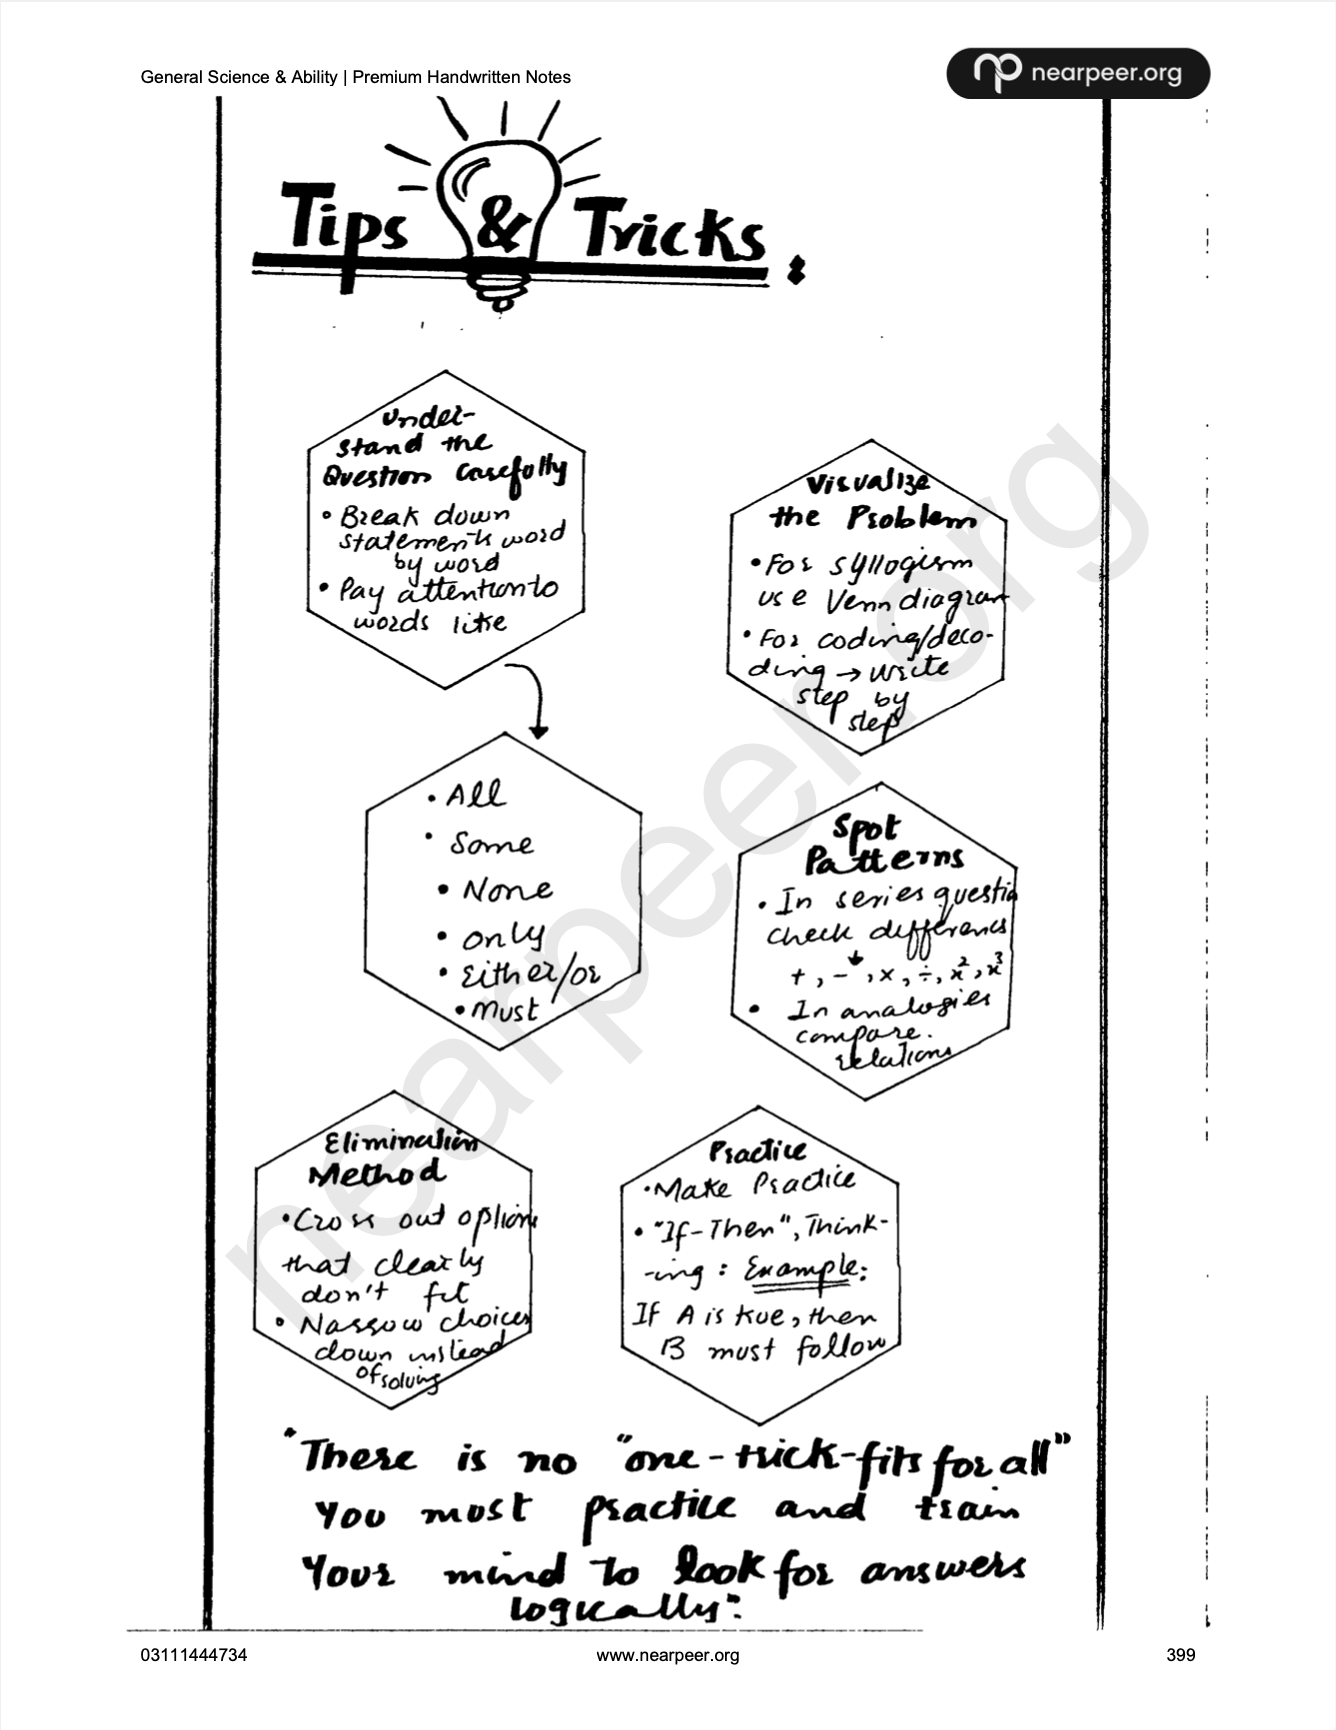 General Science & Ability | Premium Handwritten Notes
nearpeer.org
Tips & Tricks :
Under-
stand the
Question Carefully
• Break down
statements word
by word
• Pay attention to
words like
• All
• Some
• None
• only
• Either/or
• Must
Visualize
the Problem
• For syllogism
use Venn diagram
• For coding/deco-
ding → write
step by
step
Spot
Patterns
• In series questio
check difference
+, -, ×, ÷, x², x³
• In analogies
compare.
relations
Elimination
Method
• Cross out option
that clearly
don't fit
• Narrow choices
down instead
of solving
Practice
• Make Practice
• "If-Then", Think-
-ing : Example:
If A is true, then
B must follow
"There is no "one-trick-fits for all"
You must practice and train
Your mind to look for answers
logically".
nearpeer.org
03111444734
www.nearpeer.org
399